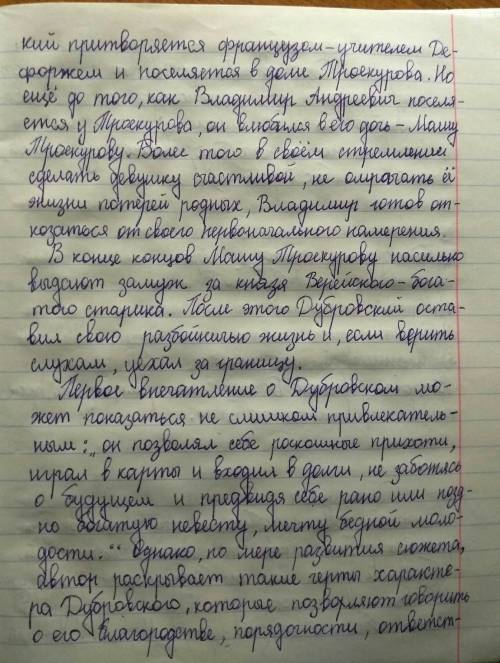 кий притворяется французом-учителем Де-
форжем и поселяется в доме Троекурова. Но
ещё до того, как Владимир Андреевич поселя-
ется у Троекурова, он влюбился в его дочь - Машу
Троекурову. Более того в своём стремлении
сделать девушку счастливой, не омрачать её
жизни потерей родных, Владимир готов от-
казаться от своего первоначального намерения.
В конце концов Машу Троекурову насильно
выдают замуж за князя Верейского - бога-
того старика. После этого Дубровский оста-
вил свою разбойничью жизнь и, если верить
слухам, уехал за границу.
Первое впечатление о Дубровском мо-
жет показаться не слишком привлекатель-
ным: „он позволял себе роскошные прихоти,
играл в карты и входил в долги, не заботясь
о будущем и предвидя себе рано или позд-
но богатую невесту, мечту бедной моло-
дости.“ Однако, по мере развития сюжета,
автор раскрывает такие черты характе-
ра Дубровского, которые позволяют говорить
о его благородстве, порядочности, ответст-